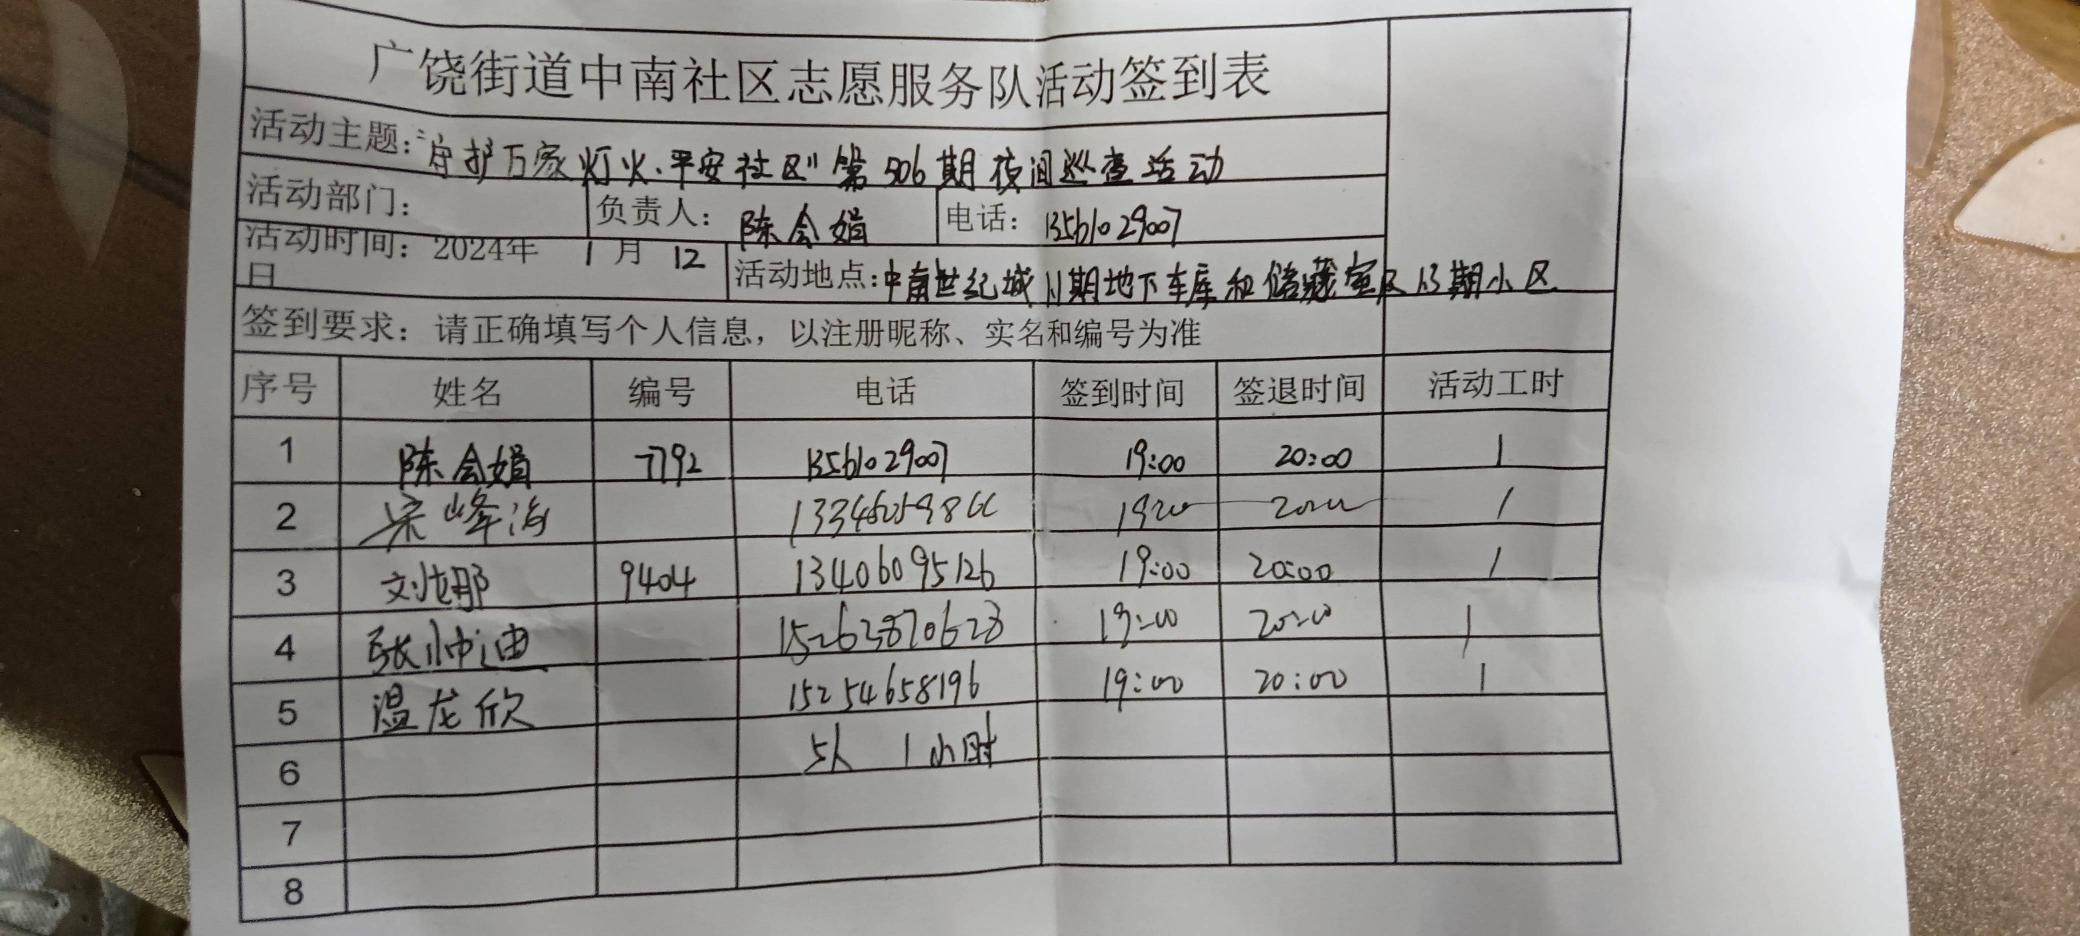 广饶街道中南社区志愿服务队活动签到表
活动主题：“守护万家灯火、平安社区”第506期夜间巡查活动
活动部门： 负责人：陈会娟 电话：13561029007
活动时间：2024年 1月 12日 活动地点：中南世纪城11期地下车库和储藏室及13期小区
签到要求：请正确填写个人信息，以注册昵称、实名和编号为准
序号 姓名 编号 电话 签到时间 签退时间 活动工时
1 陈会娟 7792 13561029007 19:00 20:00 1
2 峰海 19:00 20:00 1
3 刘娜 9404 13406095126 19:00 20:00 1
4 张帅迪 15263870628 19:00 20:00 1
5 温龙欣 15254658196 19:00 20:00 1
6 5人 1小时
7
8